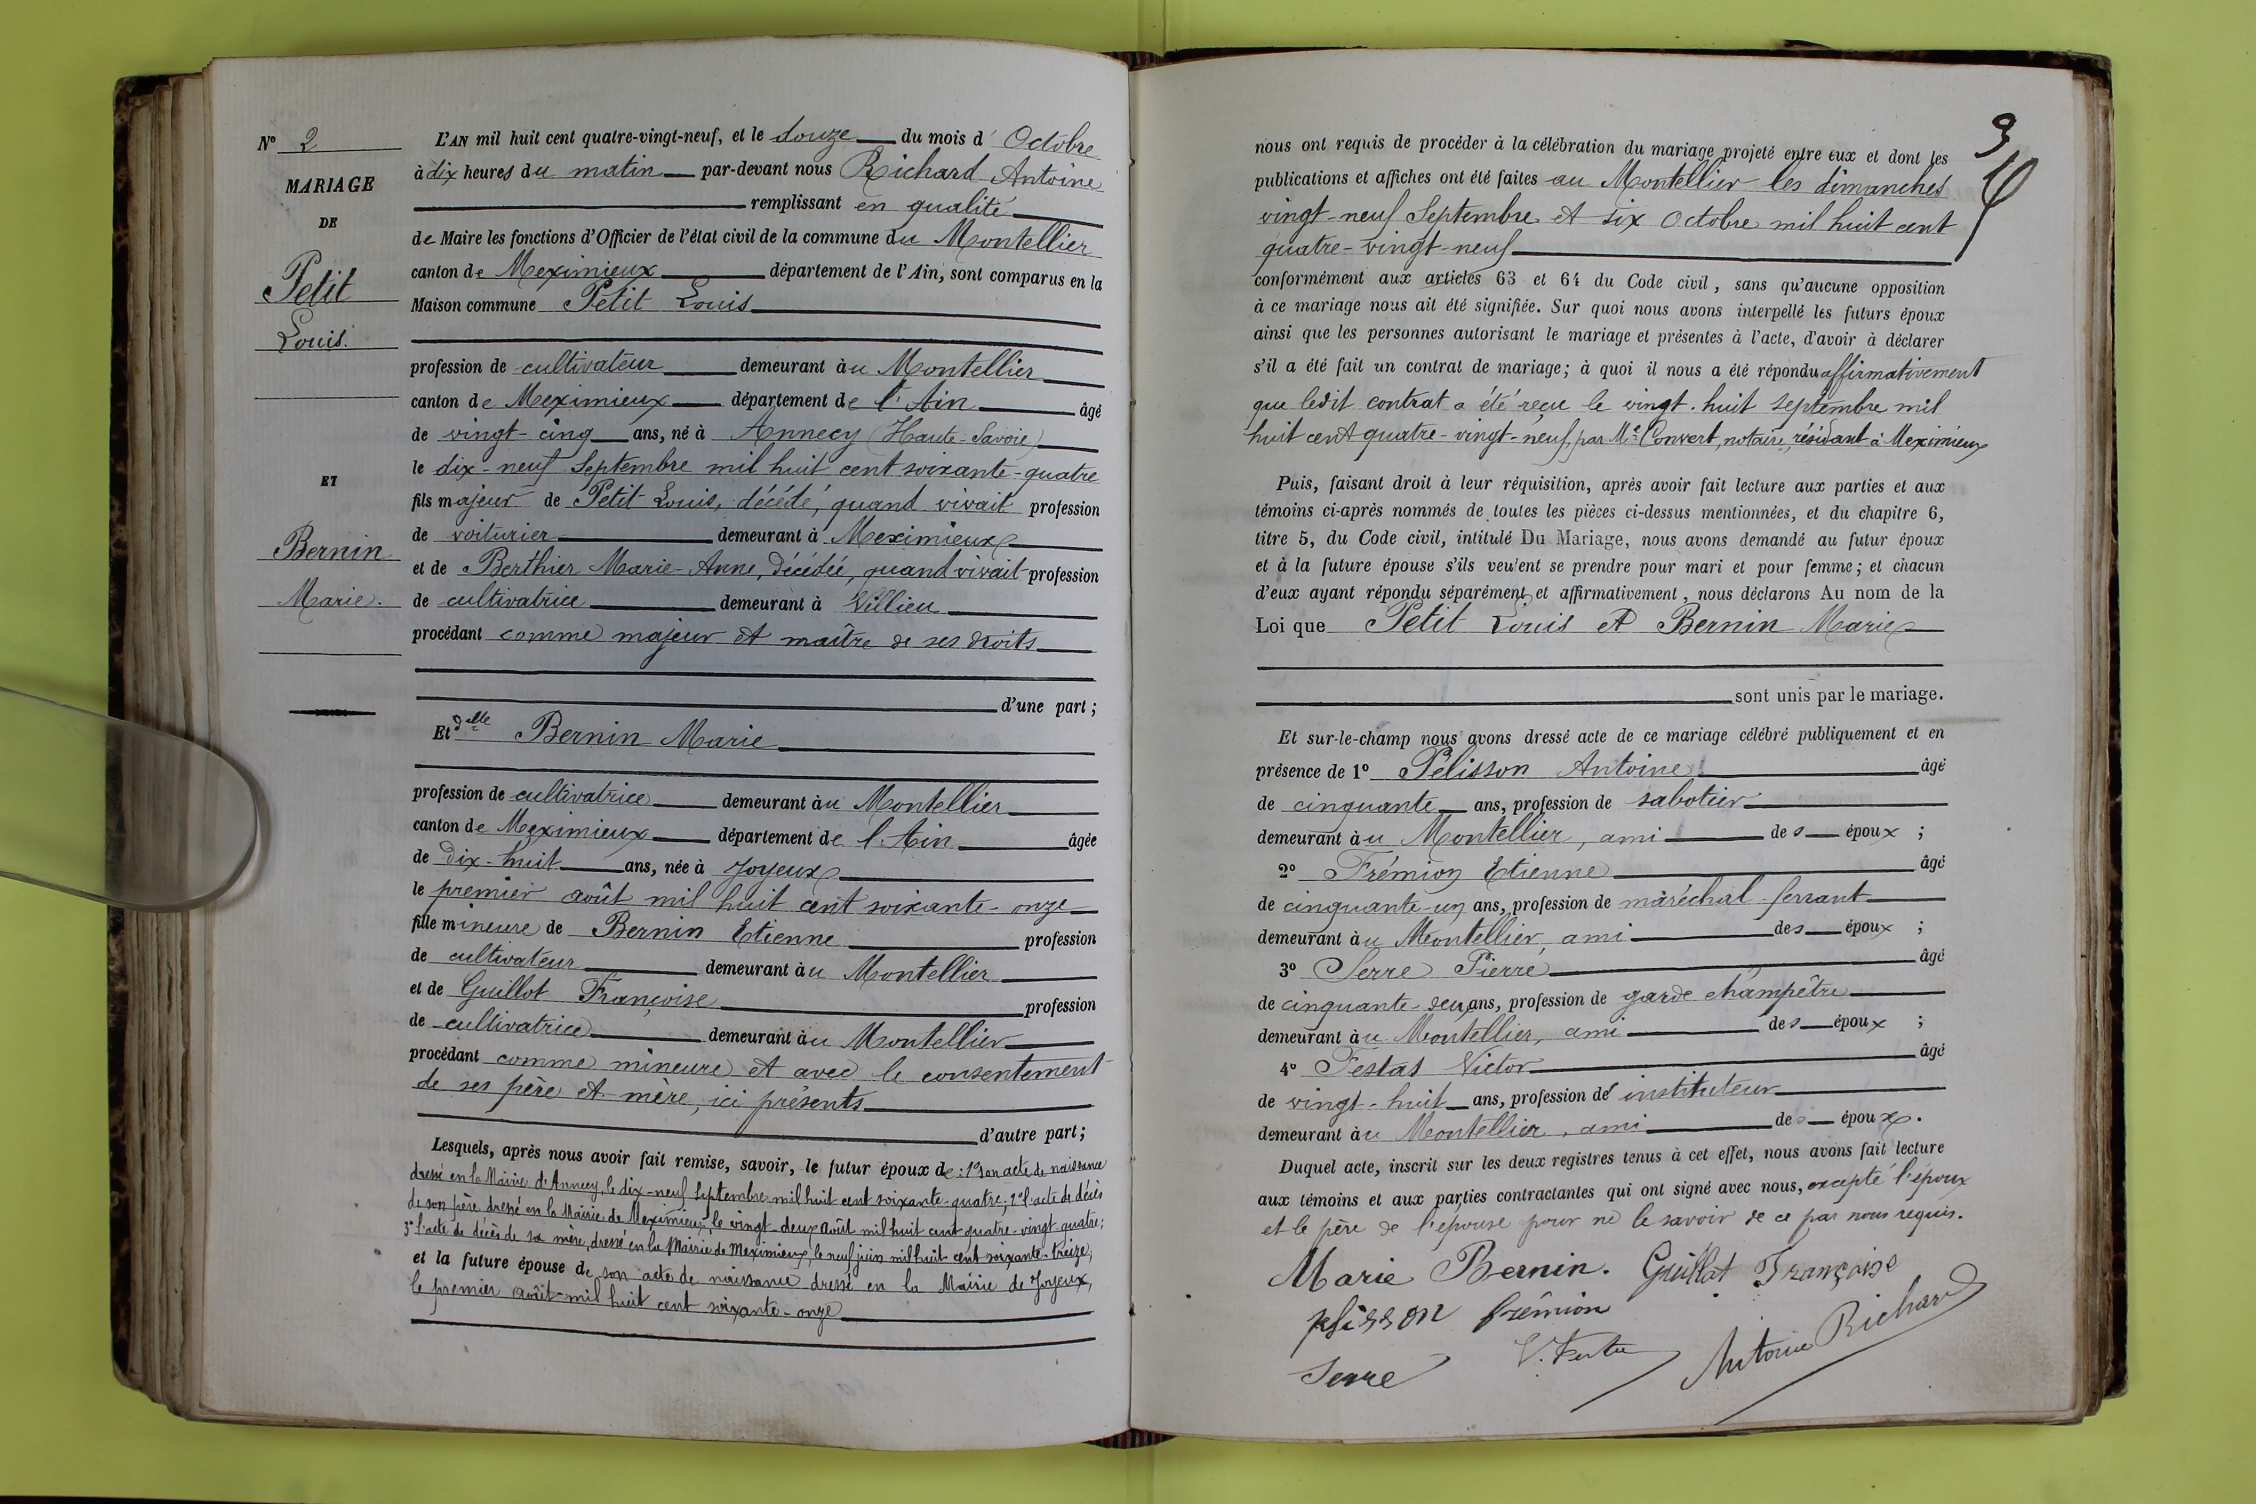 N° 2
MARIAGE
DE
Petit
Louis.
ET
Bernin
Marie.
L'AN mil huit cent quatre-vingt-neuf, et le douze du mois d'Octobre
à dix heures du matin par-devant nous Richard Antoine
remplissant en qualité
de Maire les fonctions d'Officier de l'état civil de la commune du Montellier
canton de Meximieux département de l'Ain, sont comparus en la
Maison commune Petit Louis
profession de cultivateur demeurant au Montellier
canton de Meximieux département de l'Ain âgé
de vingt-cinq ans, né à Annecy (Haute-Savoie)
le dix-neuf Septembre mil huit cent soixante-quatre
fils majeur de Petit Louis, décédé, quand vivait profession
de voiturier demeurant à Meximieux
et de Berthier Marie-Anne, décédée, quand vivait profession
de cultivatrice demeurant à Villieu
procédant comme majeur et maître de ses droits
d'une part ;
Et delle Bernin Marie
profession de cultivatrice demeurant au Montellier
canton de Meximieux département de l'Ain âgée
de dix-huit ans, née à Joyeux
le premier août mil huit cent soixante-onze
fille mineure de Bernin Etienne profession
de cultivateur demeurant au Montellier
et de Guillot Françoise profession
de cultivatrice demeurant au Montellier
procédant comme mineure et avec le consentement
de ses père et mère, ici présents
d'autre part ;
Lesquels, après nous avoir fait remise, savoir, le futur époux de : 1° son acte de naissance
dressé en la Mairie d'Annecy, le dix-neuf Septembre mil huit cent soixante-quatre ; 2° l'acte de décès
de son père dressé en la Mairie de Meximieux, le vingt-deux août mil huit cent quatre-vingt quatre ;
3° l'acte de décès de sa mère, dressé en la Mairie de Meximieux, le neuf juin mil huit cent soixante-treize,
et la future épouse de son acte de naissance dressé en la Mairie de Joyeux,
le premier août mil huit cent soixante-onze
3
nous ont requis de procéder à la célébration du mariage projeté entre eux et dont les
publications et affiches ont été faites au Montellier les dimanches
vingt-neuf Septembre et six Octobre mil huit cent
quatre-vingt-neuf
conformément aux articles 63 et 64 du Code civil, sans qu'aucune opposition
à ce mariage nous ait été signifiée. Sur quoi nous avons interpellé les futurs époux
ainsi que les personnes autorisant le mariage et présentes à l'acte, d'avoir à déclarer
s'il a été fait un contrat de mariage ; à quoi il nous a été répondu affirmativement
que ledit contrat a été reçu le vingt-huit septembre mil
huit cent quatre-vingt-neuf, par Me Convert, notaire, résidant à Meximieux
Puis, faisant droit à leur réquisition, après avoir fait lecture aux parties et aux
témoins ci-après nommés de toutes les pièces ci-dessus mentionnées, et du chapitre 6,
titre 5, du Code civil, intitulé Du Mariage, nous avons demandé au futur époux
et à la future épouse s'ils veulent se prendre pour mari et pour femme ; et chacun
d'eux ayant répondu séparément et affirmativement, nous déclarons Au nom de la
Loi que Petit Louis et Bernin Marie
sont unis par le mariage.
Et sur-le-champ nous avons dressé acte de ce mariage célébré publiquement et en
présence de 1° Pélisson Antoine âgé
de cinquante ans, profession de sabotier
demeurant au Montellier, ami des époux ;
2° Frémion Etienne âgé
de cinquante-un ans, profession de maréchal-ferrant
demeurant au Montellier, ami des époux ;
3° Serre Pierre âgé
de cinquante-deux ans, profession de garde champêtre
demeurant au Montellier, ami des époux ;
4° Festas Victor âgé
de vingt-huit ans, profession de instituteur
demeurant au Montellier, ami des époux.
Duquel acte, inscrit sur les deux registres tenus à cet effet, nous avons fait lecture
aux témoins et aux parties contractantes qui ont signé avec nous, excepté l'époux
et le père de l'épouse pour ne le savoir de ce par nous requis.
Marie Bernin. Guillot Françoise
plisson frémion
Serre
Antoine Richard